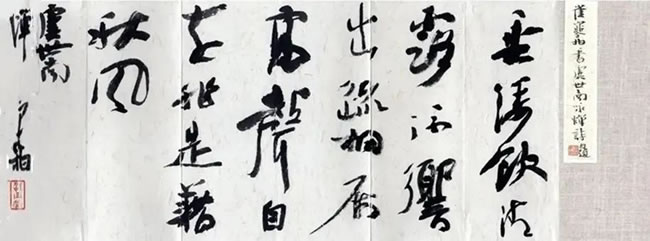 書虞世南咏蟬詩
垂緌飲清
露流響
出疏桐居
高聲自
遠非是藉
秋風
虞世南
蟬